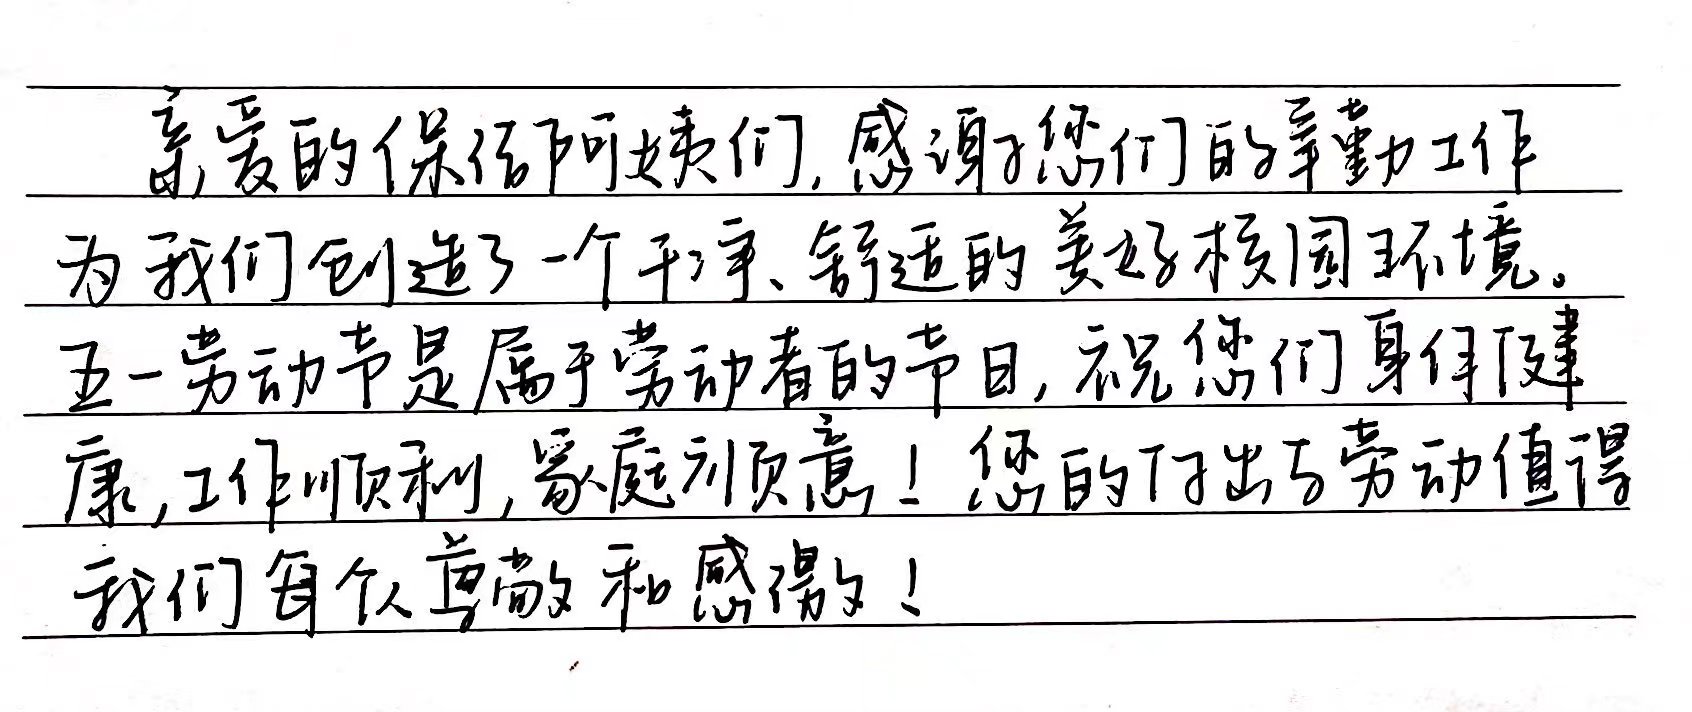 亲爱的保洁阿姨们,感谢您们的辛勤工作
为我们创造了一个干净、舒适的美好校园环境。
五一劳动节是属于劳动者的节日,祝您们身体健
康,工作顺利,家庭顺意!您的付出与劳动值得
我们每个人尊敬和感激!